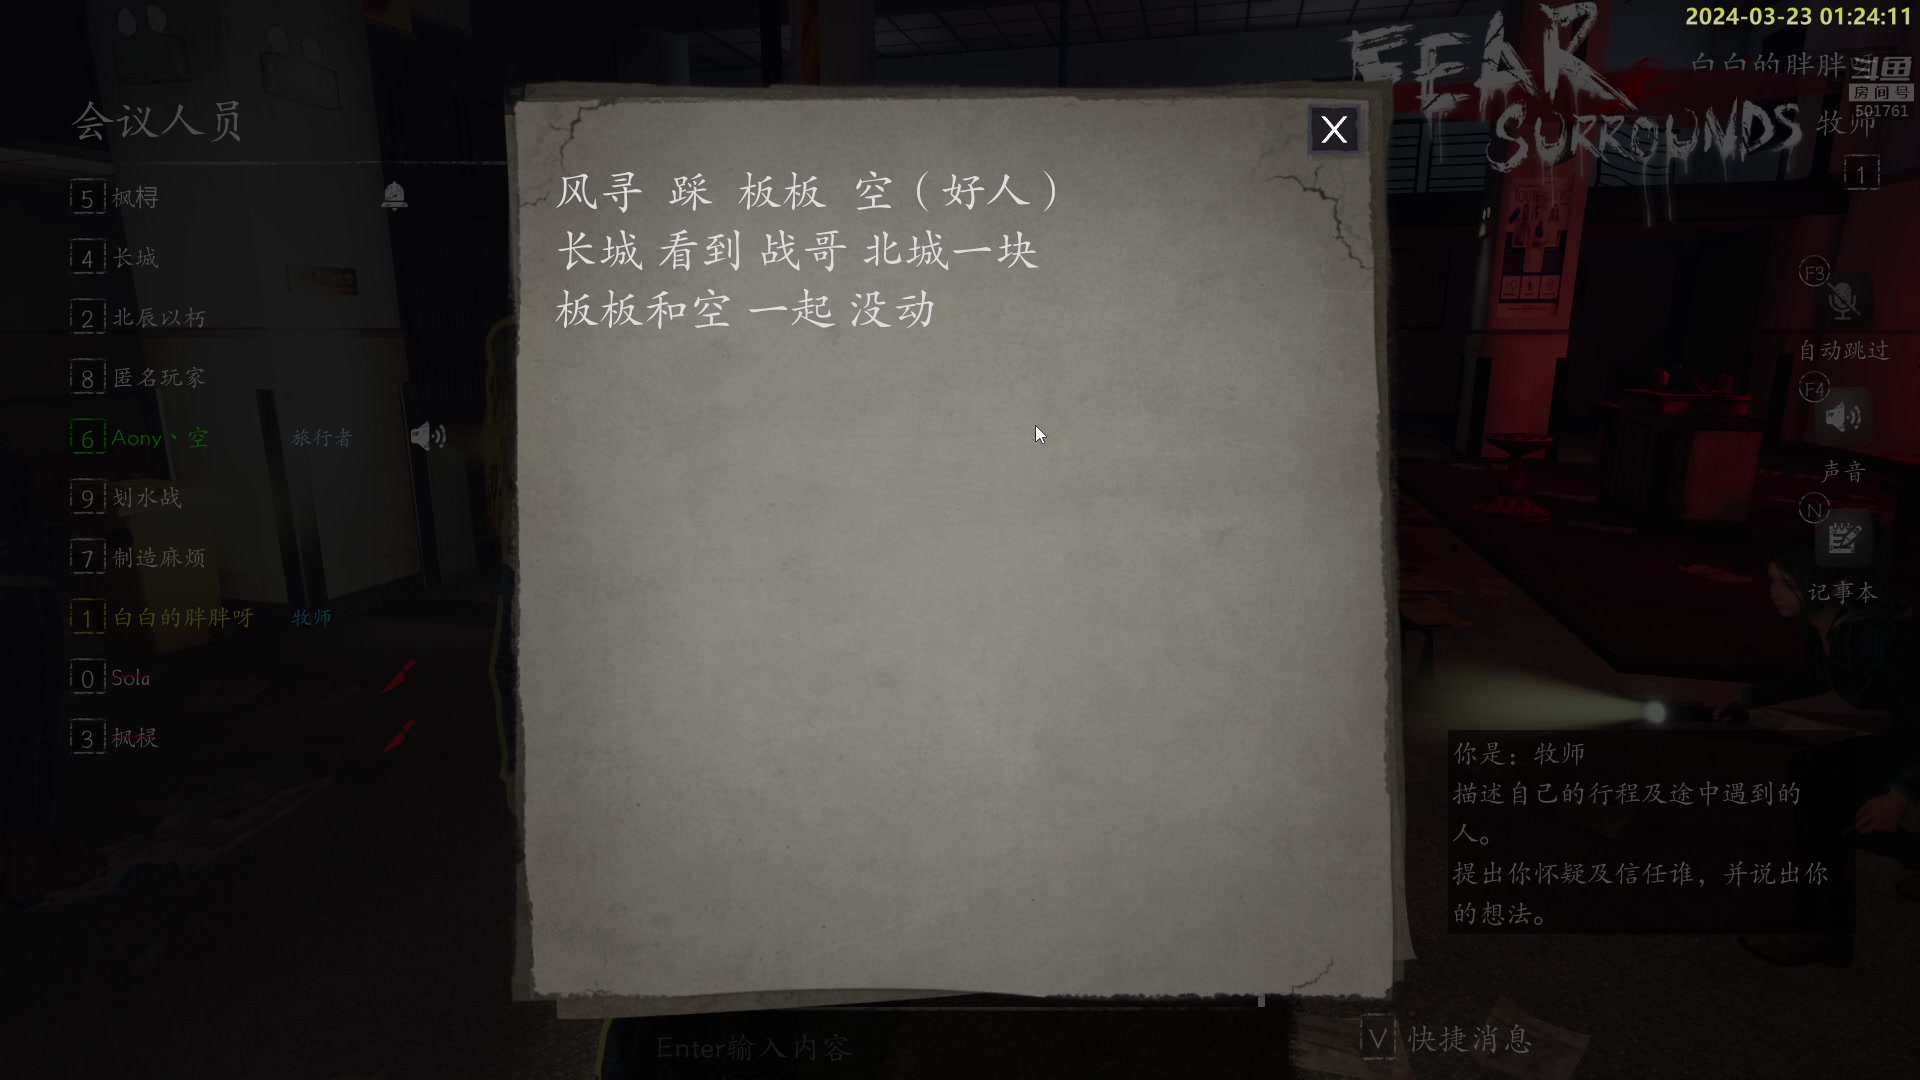 2024-03-23 01:24:11
FEAR SURROUNDS
白白的胖胖呀
斗鱼
房间号
501761
牧师
1
会议人员
5 枫桪
4 长城
2 北辰以朽
8 匿名玩家
6 Aony丶空 旅行者
9 划水战
7 制造麻烦
1 白白的胖胖呀 牧师
0 Sola
3 枫棂
X
风寻 踩 板板 空（好人）
长城 看到 战哥 北城一块
板板和空 一起 没动
F3
自动跳过
F4
声音
N
记事本
你是：牧师
描述自己的行程及途中遇到的
人。
提出你怀疑及信任谁，并说出你
的想法。
Enter输入内容
V 快捷消息